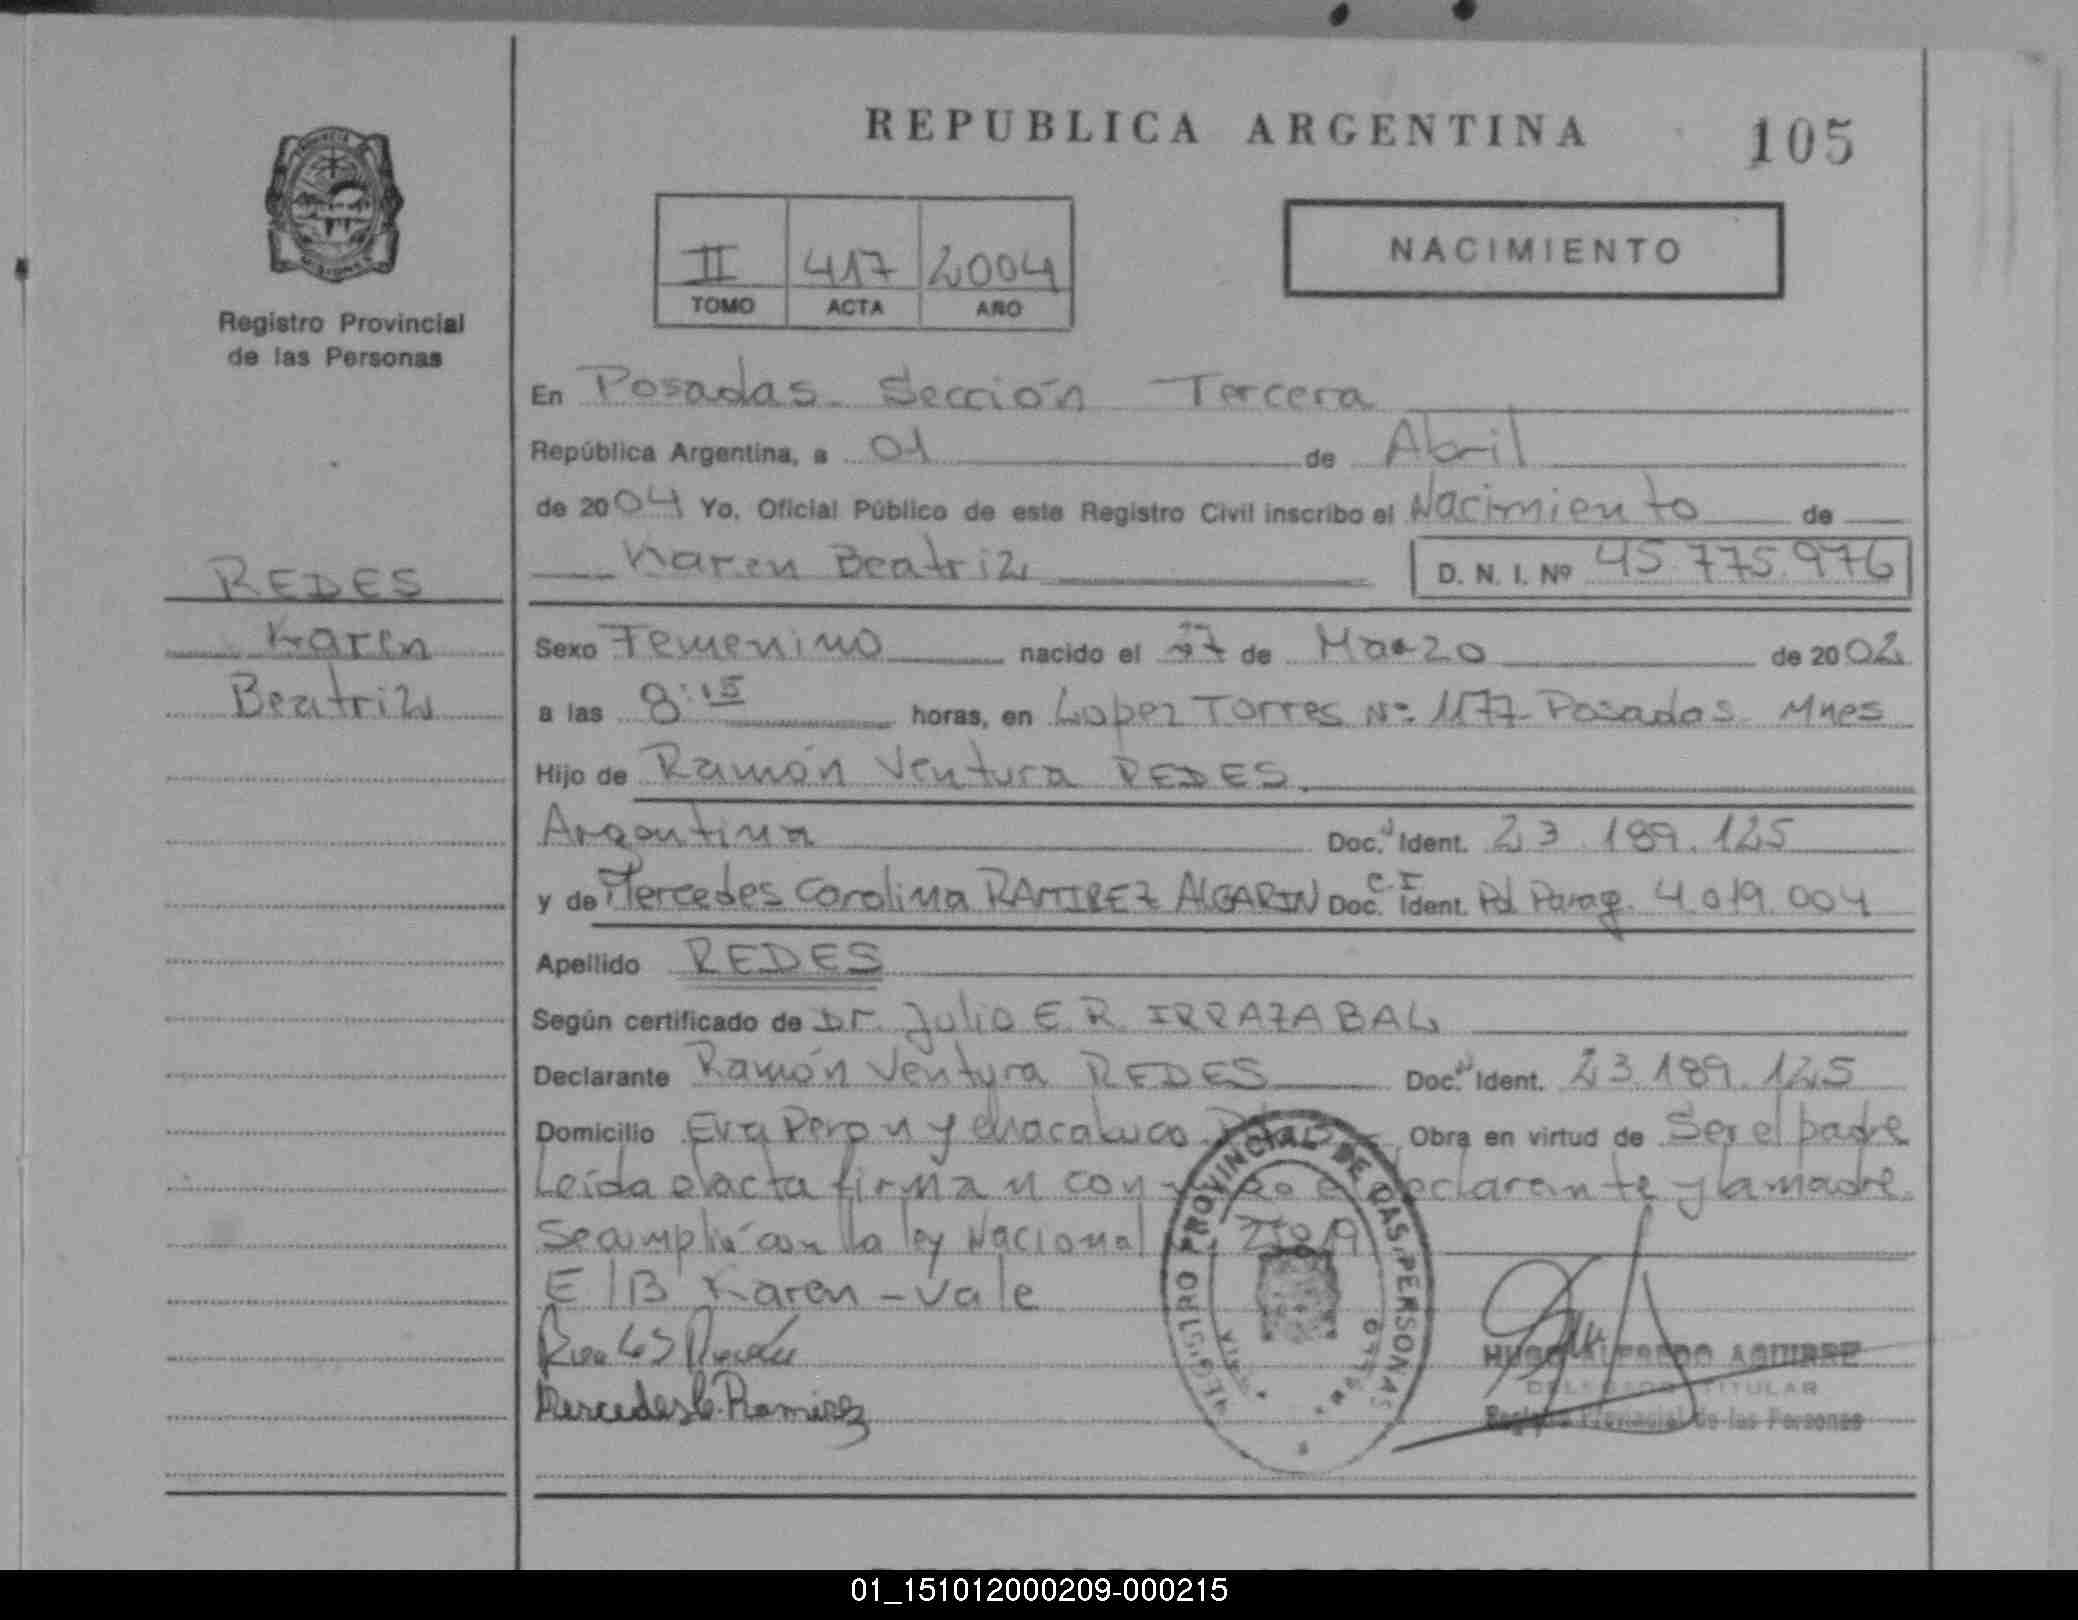 REPUBLICA ARGENTINA 105
NACIMIENTO
II 417 2004
TOMO ACTA AÑO
Registro Provincial
de las Personas
En Posadas Sección Tercera
República Argentina, a 01 de Abril
de 2004 Yo. Oficial Público de este Registro Civil inscribo el Nacimiento de
Karen Beatriz D. N. I. Nº 45.775.976
REDES
Karen
Beatriz
Sexo Femenino nacido el de Marzo de 2002
a las 8:15 horas, en Lopez Torres Nº 1177 Posadas Mnes
Hijo de Ramón Ventura REDES
Argentina Doc. Ident. 23.189.125
y de Mercedes Carolina RAMIREZ ALGARIN Doc. Ident. C.I Pol Parag. 4.019.004
Apellido REDES
Según certificado de Dr. Julio E.R. IRRAZABAL
Declarante Ramón Ventura REDES Doc. Ident. 23.189.125
Domicilio Eva Peron y Obra en virtud de Ser el padre
Leída el acta firman con declarante y la madre
Se cumplió con la ley Nacional
E/B Karen - vale
Mercedes C. Ramirez
REGISTRO PROVINCIAL DE LAS PERSONAS
HUGO ALFREDO AGUIRRE
DELEGADO TITULAR
Registro Provincial de las Personas
01_151012000209-000215